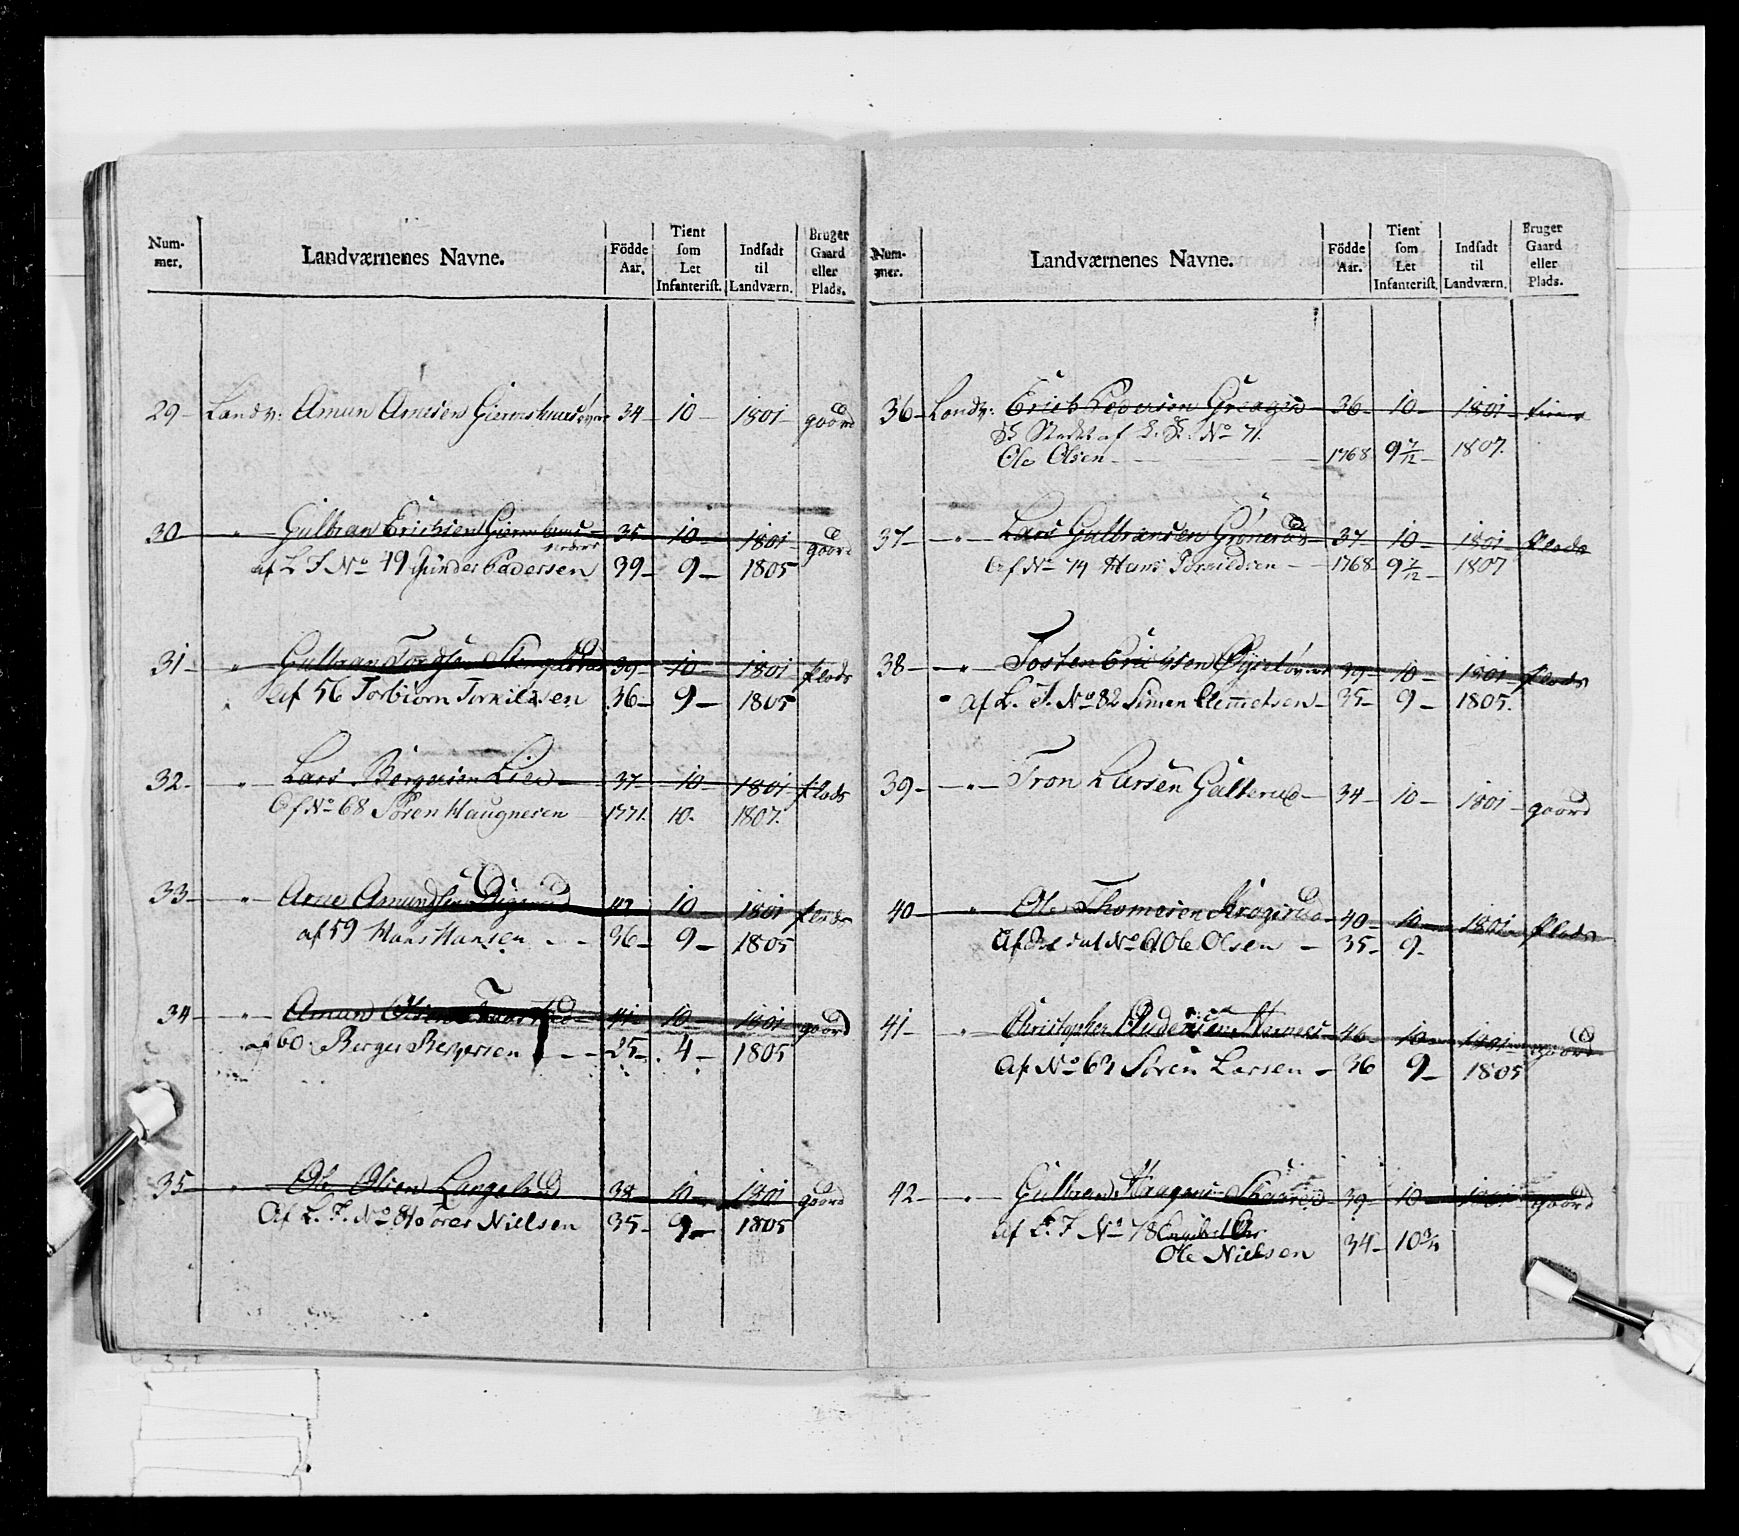 Num-
mer.
Landværnenes Navne.
Födde
Aar.
Tient
som
Let
Infanterist.
Indsadt
til
Landværn.
Bruger
Gaard
eller
Plads.
29 - Landv: Amun Amesen 34 - 10 - 1801 gaard
30 - " - Gulbran Erichsen 35 - 10 - 1801 gaard
af L I No 49 Peersen 39 - 9 - 1805
31 - " Gulbran 39 - 10 - 1801 Plads
af 56 Torbiörn Torkildsen 36 - 9 - 1805
32 - " - Lars Bergersen Lien - 37 - 10 - 1801 Plads
Af No 68 Sören Haugnesen 1771. 10. 1807.
33 - " - Arne Amundsen 10 - 1801 Plads
af 59 Hans Hansen - - 36 - 9 - 1805
34 - " - Amun Olsen 41 - 10 - 1801 gaard
af 60. Berger Bergersen - - 25 - 4 - 1805
35 - " Ole Olsen 38 - 10 - 1801 gaard
Af L. I. No Nielsen 35 - 9 - 1805
Num-
mer.
Landværnenes Navne.
Födde
Aar.
Tient
som
Let
Infanterist.
Indsadt
til
Landværn.
Bruger
Gaard
eller
Plads.
36 - Landv: Erich Pedersen 36 - 10 - 1801
af No 71.
Ole Olsen - 1768 9 7/12 - 1807.
37 - - " - Lars Gulbransen Grönerud 37 - 10 - 1801 Plads
Af No 74 Hans - 1768 9 7/12 - 1807
38 - - " - Tosten Erichsen 39 - 10 - 1801 Plads
af L. I. No 82 Simen Clemetsen - 35 - 9 - 1805.
39 - - " - Tron Larsen Gulterud - 34 - 10 - 1801 - gaard
40 - " Ole Thomesen 40 - 10 - 1801 - Plads
Af No Ole Olsen - 35 - 9 -
41 - " - Christopher 46 - 10 - 1801 gaard
Af No 63 Sören Larsen - 36 9 - 1805
42 - - " - Gulbran 39 - 10 - 1801 gaard
af L. I No 78
Ole Nielsen 34 - 10 3/4